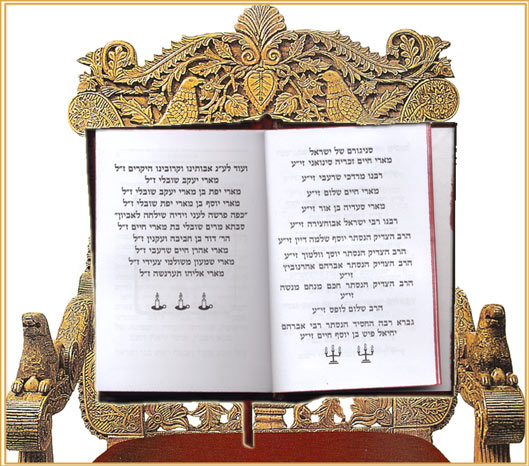 סניגורם של ישראל
מארי חיים זכריה סינואני זי״ע
רבנו מרדכי שרעבי זי״ע
מארי חיים שלום זי״ע
מארי סעדיה בן אור זי״ע
רבנו רבי ישראל אבוחצירה זי״ע
הרב הצדיק הנסתר יוסף שלמה דיין זי״ע
הרב הצדיק הנסתר יוסך וולטוך זי״ע
הרב הצדיק הנסתר אברהם אהרונוביץ
זי״ע
הרב הצדיק הנסתר חכם מנחם מנשה
זי״ע
הרב שלום לופס זי״ע
גברא רבה החסיד הנסתר רבי אברהם
יחיאל פיש בן יוסף חיים זי״ע
ועוד לע״נ אבותינו וקרובינו היקרים ז״ל
מארי יעקב שובלי ז״ל
מארי יפת בן מארי יעקב שובלי ז״ל
מארי יוסף בן מארי יפת שובלי ז״ל
״כפה פרשה לעני וידיה שילחה לאביון״
סבתא מרים שובלי בת מארי חיים ז״ל
הר׳ דוד בן חביבה ועקנין ז״ל
מארי אהרן חיים שרעבי ז״ל
מארי שמעון משולמי צעידי ז״ל
מארי אליהו תערנשה ז״ל